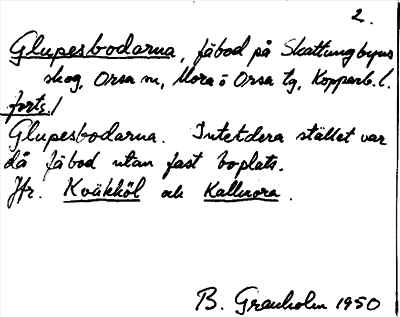 2.
Glupesbodarna, fäbod på Skattungbyns
skog, Orsa sn, Mora o Orsa tg, Kopparb. l.
forts./
Glupesbodarna. Intetdera stället var
då fäbod utan fast boplats.
Jfr. Kväkköl och Kallmora.
B. Granholm 1950